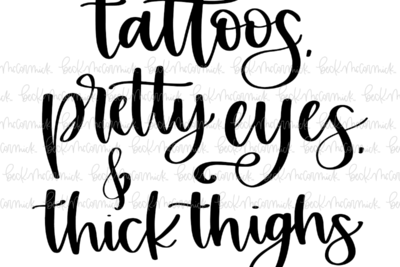 tattoos.
pretty eyes.
&
thick thighs